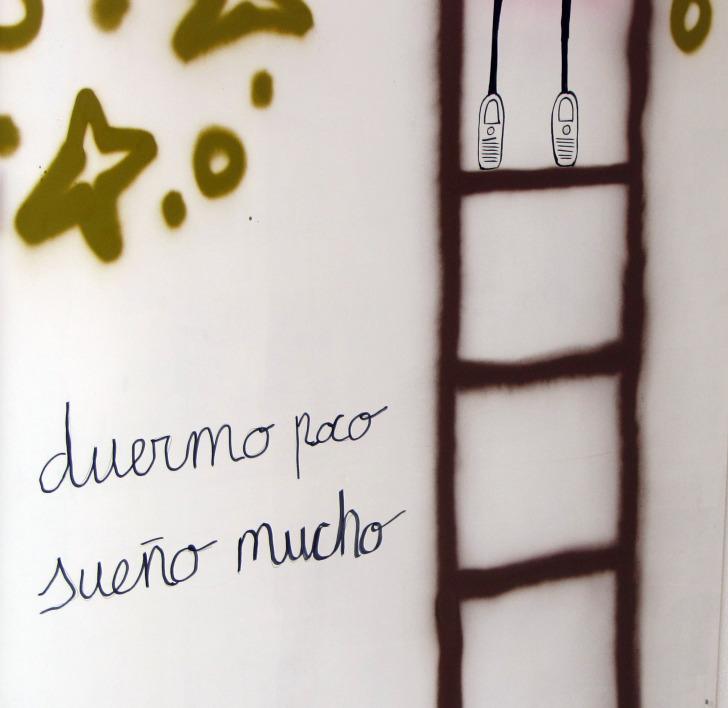 duermo poco
sueño mucho